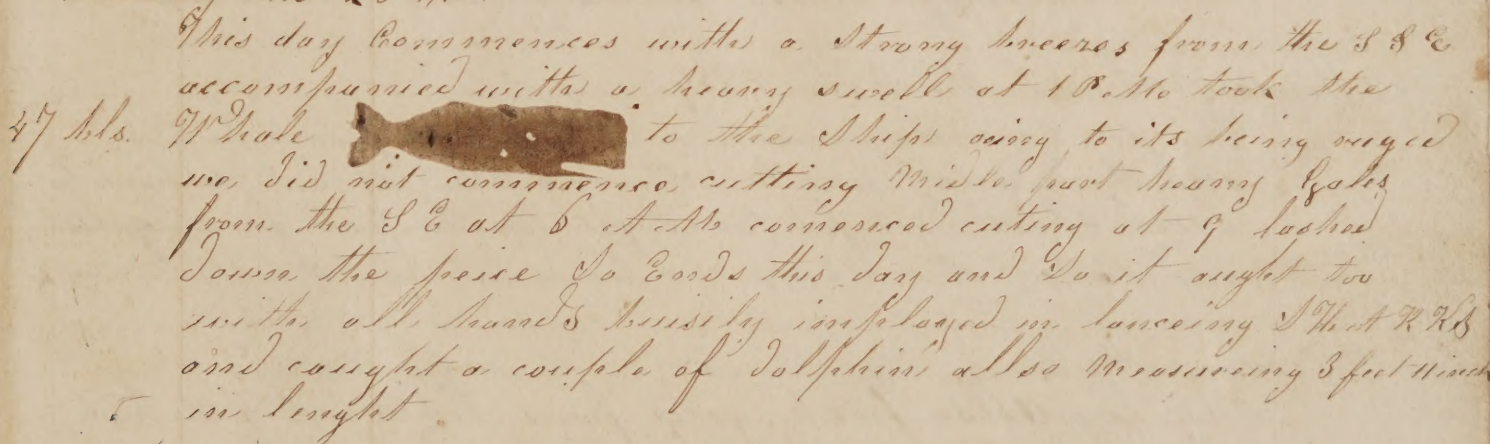 This day Commences with a Strong breezes from the S S E
accompanied with a heavy swell at 1 P M took the
47 bls. Whale to the Ship oeing to its being ruged
we did not commence cutting Midle part heavy Gales
from the S E at 6 A M comenced cuting at 9 lashed
down the peice So Ends this day and So it aught too
with all hands buisily imployed in lanceing S H A R K S
and caught a couple of dolphin allso Measureing 3 feet 11 inch
in lenght